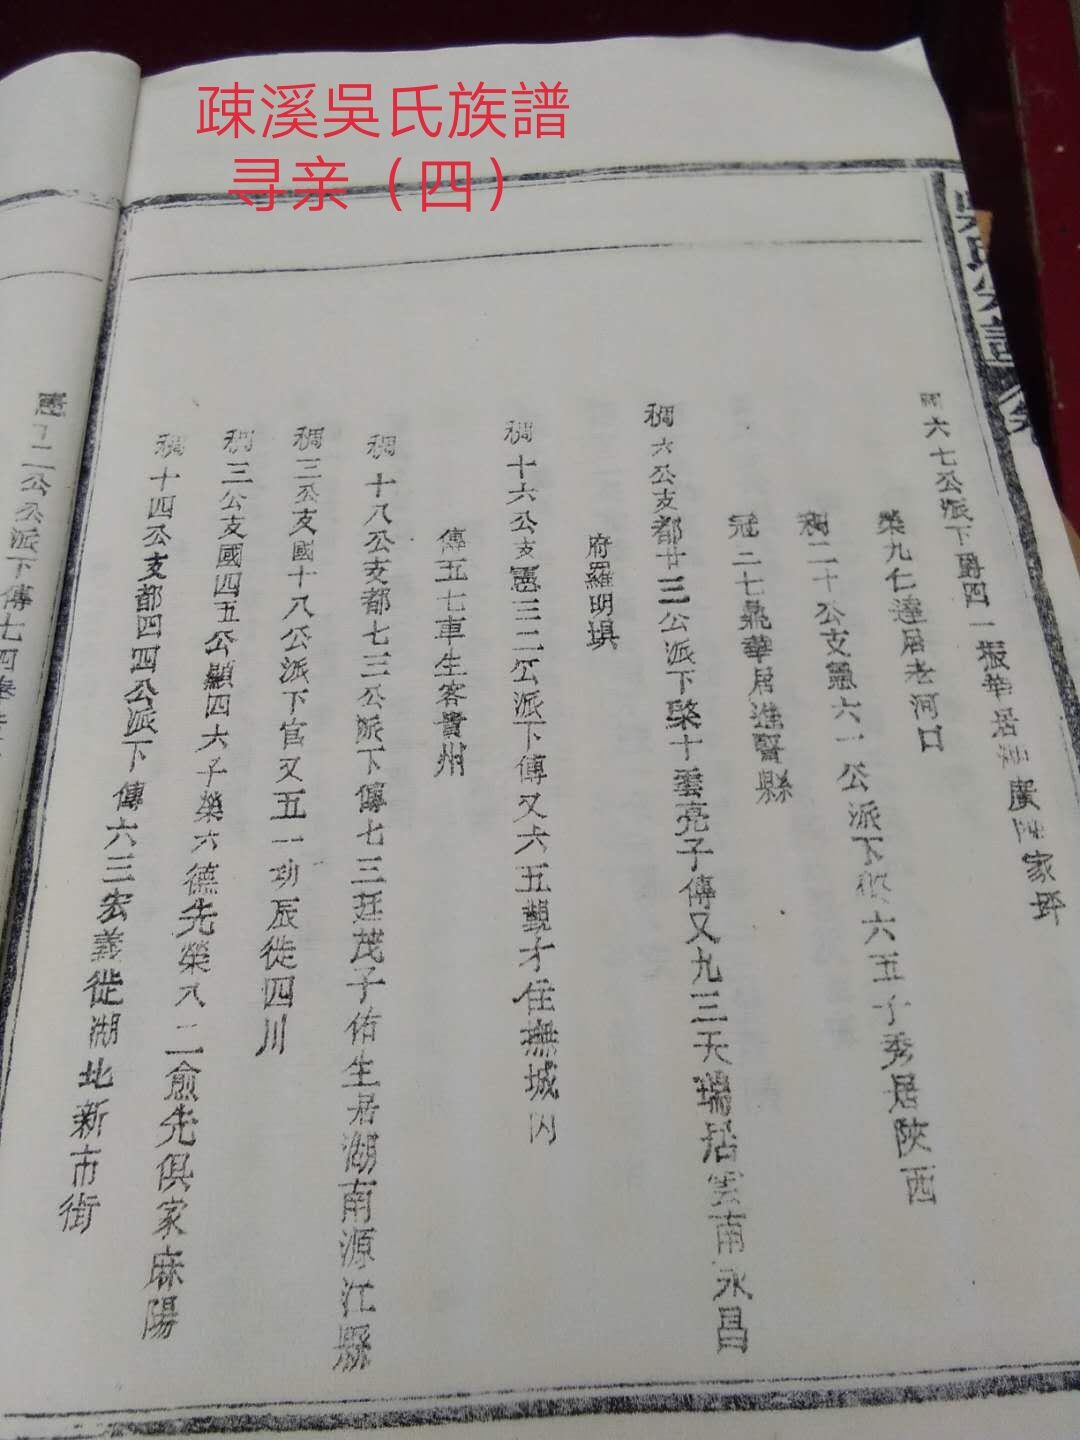 疎溪吳氏族譜
寻亲（四）
吳氏宗譜
六七公派下爵四一振華居廣家坪
榮九仁達居老河口
稠二十公支憲六一公派下六五子秀居陝西
冠二七鼎華居進賢縣
稠六公支都廿三公派下棨十雲亮子傳又九三天瑞居雲南永昌
府羅明埧
稠十六公支憲三二公派下傳又六五觀才住撫城内
傳五七車生客貴州
稠十八公支都七三公派下傳七三廷茂子佑生居湖南源江縣
稠三公支國十八公派下官又五一功辰徙四川
稠三公支國四五公顯四六子榮六德先榮八二愈先俱家麻陽
稠十四公支都四四公派下傳六三宏義徙湖北新市街
憲二公派下傳七四